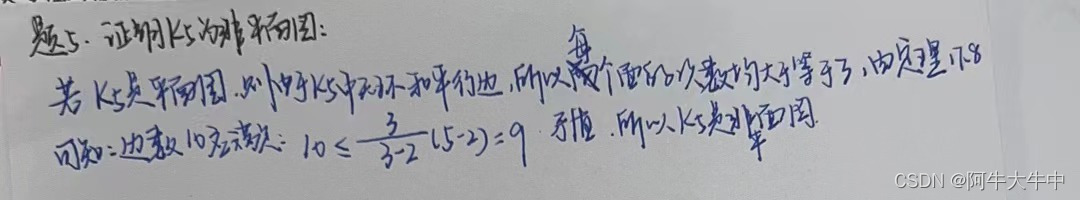 题5. 证明K5为非平面图:
若K5是平面图.则由于K5中无环和平行边,所以每个面的次数均大于等于3,由定理17.8
可知:边数10应满足: 10 ≤ 3/(3-2) (5-2) = 9 矛盾.所以K5是非平面图.
CSDN @阿牛大牛中